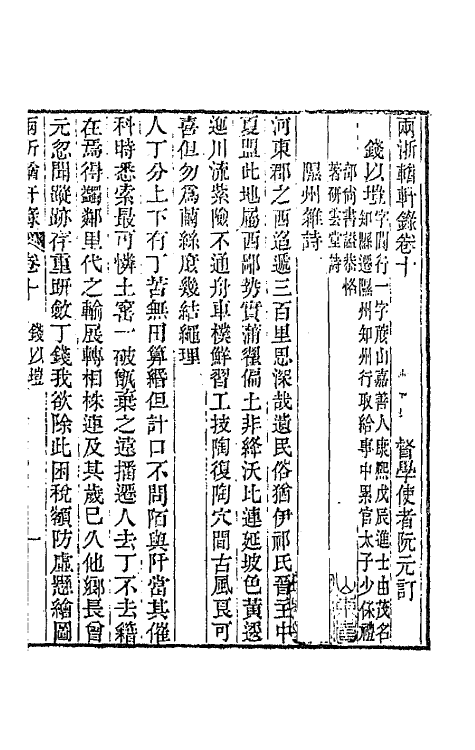 兩浙輶軒錄卷十
督學使者阮元訂
錢以塏字閬行一字蔗山嘉善人康熙戊辰進士由茂名
知縣遷隰州知州行取給事中累官太子少保禮
部尚書諡恭恪
著研雲堂詩
隰州雜詩
河東郡之西迢遞三百里思深哉遺民俗猶伊祁氏晉主中
夏盟此地屬西鄙勢實蒲翟偏土非絳沃比連延坡色黃邐
迤川流紫險不通舟車樸鮮習工技陶復陶穴間古風良可
喜但勿為繭絲庶幾結繩理
人丁分上下有丁苦無田算緡但計口不問陌與阡當其催
科時悉索最可憐土窰一破甑棄之遠播遷人去丁不去籍
在為得蠲鄰里代之輸展轉相株連及其歲已久他鄉長曾
元忽聞蹤跡存重研斂丁錢我欲除此困稅額防虛懸繪圖
兩浙輶軒錄
卷十
錢以塏
一